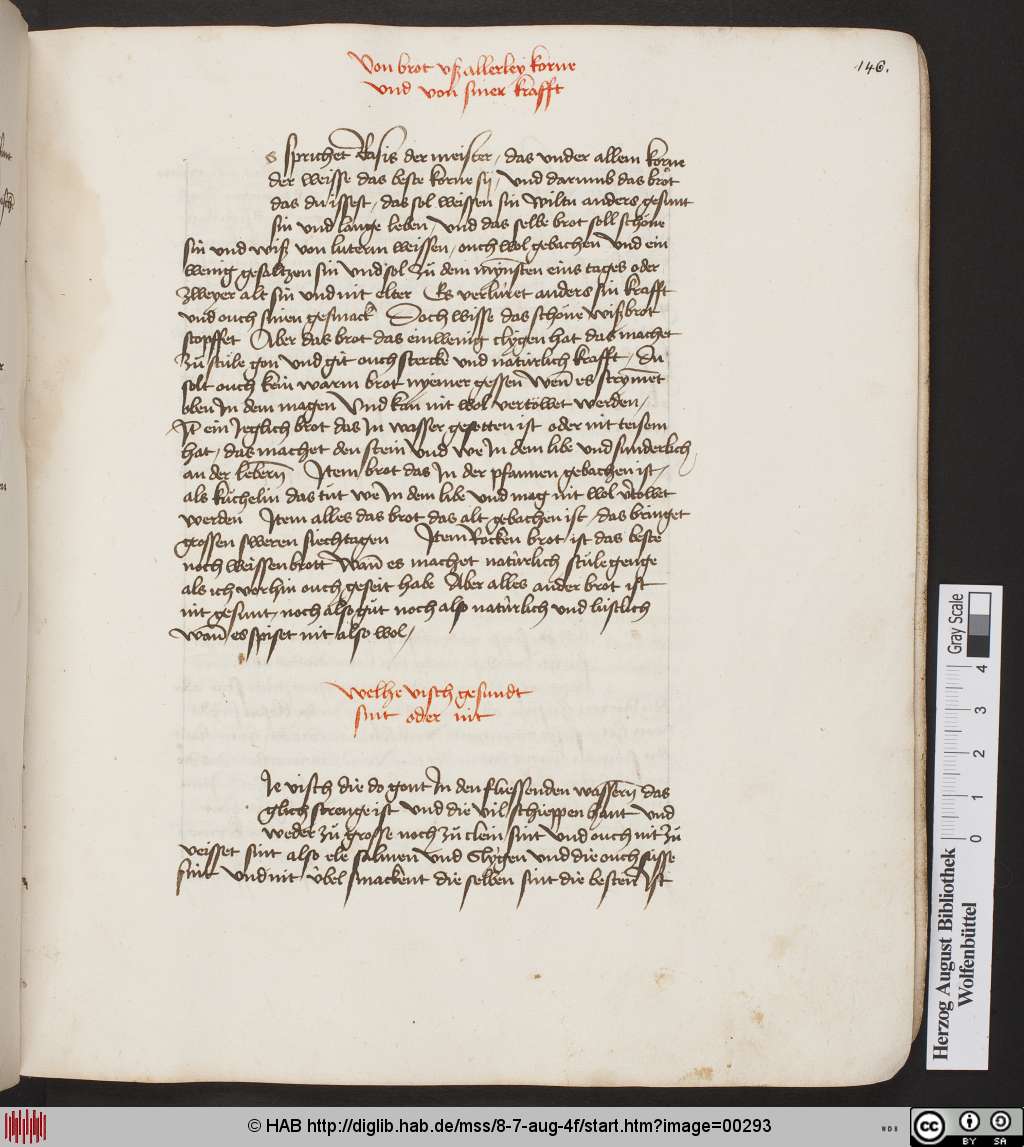 146.
Von brot vß allerley korne
vnd von siner krafft
s sprichet Rasis der meister / das vnder allem korne
der weisse das beste korne sij / vnd darumb das brot
das du issest / das sol weissen sin wiltu anders gesunt
sin vnd lange leben / vnd das selbe brot soll schone
sin vnd wiß von luterm weissen / ouch wol gebachen vnd ein
wenig gesaltzen sin vnd sol zu dem mynsten eins tages oder
zweyer alt sin vnd nit elter Es verluret anders sin krafft
vnd ouch sinen gesmack Doch wisse das schone wißbrot
stopffet Aber das brot das ein wenig clygen hat das machet
zu stule gon vnd git ouch stercke vnd naturlich krafft / Du
solt ouch kein warm brot nyemer gessen wen̄ es strymet
oben In dem magen Vnd kan nit wol vertowet werden /
It̄ ein Jeglich brot das In wasser gesotten ist oder nit teisem
hat / das machet den stein vnd we In dem libe vnd sunderlich
an der lebern̄ Item brot das In der pfannen gebachen ist /
als kuchelin das tut we In dem libe vnd mag nit wol v̄towet
werden Item alles das brot das alt gebachen ist / das bringet
grossen sweren siechtagen Item Rocken brot ist das beste
noch weissenbrott wan̄ es machet naturlich stulegenge
als ich vorhin ouch geseit habe Aber alles ander brot ist
nit gesunt / noch also gut noch also naturlich vnd lustlich
wan̄ es spiset nit also wol /
welhe visch gesundt
sint oder nit
Je visch die do gont In den fliessenden wassern̄ das
glich strenge ist vnd die vil schieppen hant vnd
weder zu grosse noch zu clein sint vnd ouch nit zu
veisset sint also ele salmen vnd Slygen vnd die ouch susse
sint vnd nit vbel smackent die selben sint die besten Ist
Gray Scale
0 1 2 3 4
Herzog August Bibliothek
Wolfenbüttel
© HAB http://diglib.hab.de/mss/8-7-aug-4f/start.htm?image=00293
WDB
cc BY SA